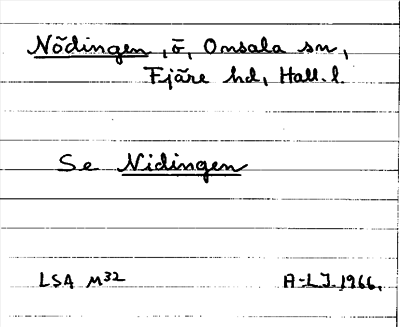 Nödingen, ö, Onsala sn,
Fjäre hd, Hall. l.
Se Nidingen
LSA M32 A-L J. 1966.